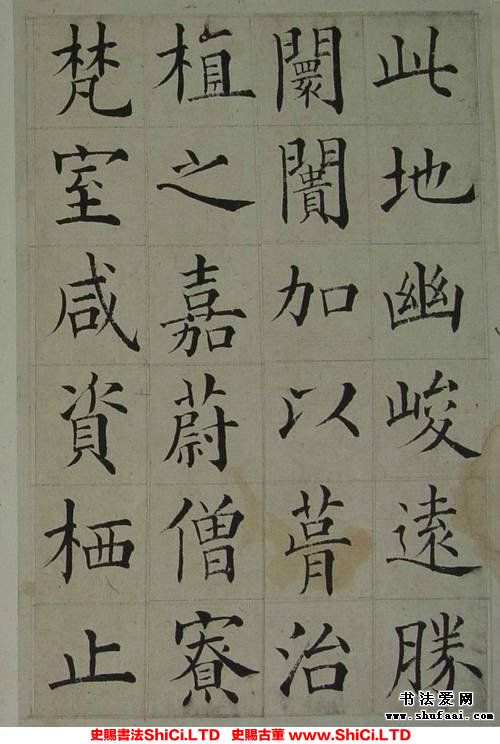 此地幽峻遠勝
闤闠加以葺治
植之嘉蔚僧寮
梵室咸資栖止
书法爱网
www.shufaai.com
史賜書法ShiCi.LTD 史賜古董www.ShiCi.LTD